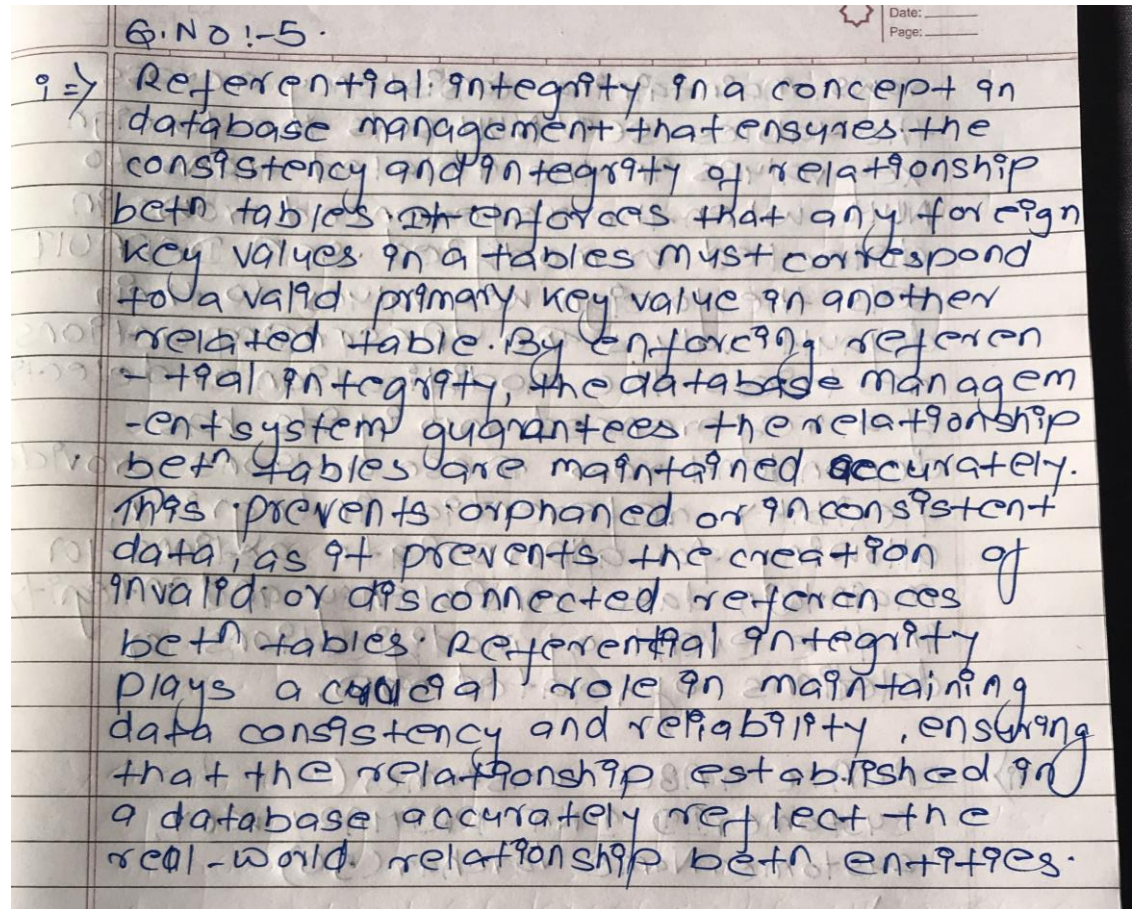 Date:
Page:
Q.NO:-5.
i=> Referential integrity in a concept in
database management that ensures the
consistency and integrity of relationship
betn tables. It enforces that any foreign
key values in a tables must correspond
to a valid primary key value in another
related table. By enforcing referen
-tial integrity, the database managem
-ent system guarantees the relationship
betn tables are maintained accurately.
This prevents orphaned or inconsistent
data, as it prevents the creation of
invalid or disconnected references
betn tables. Referential integrity
plays a crucial role in maintaining
data consistency and reliability, ensuring
that the relationship established in
a database accurately reflect the
real-world relationship betn entities.